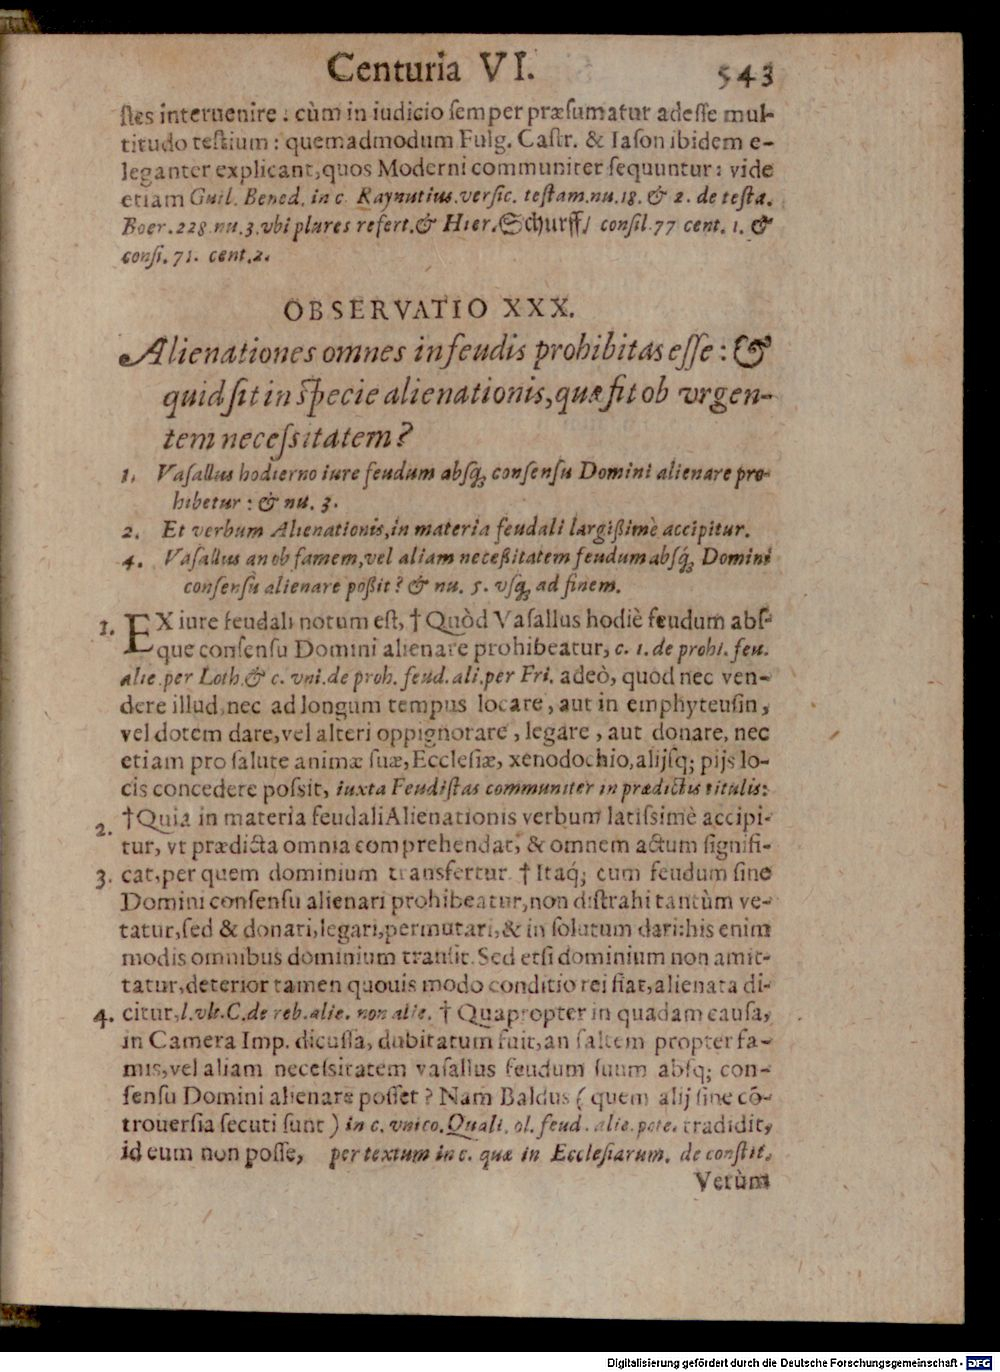 Centuria VI. 543
ſtes interuenire: cùm in iudicio ſemper præſumatur adeſſe mul-
titudo teſtium: quemadmodum Fulg. Caſtr. & Iaſon ibidem e-
leganter explicant, quos Moderni communiter ſequuntur: vide
etiam Guil. Bened. in c. Raynutius. verſic. teſtam. nu. 18. & 2. de teſta.
Boer. 228. nu. 3. vbi plures refert. & Hier. Schurff/ conſil. 77 cent. 1. &
conſi. 71. cent. 2.
OBSERVATIO XXX.
Alienationes omnes in feudis prohibitas eſſe: &
quid ſit in ſpecie alienationis, quæ fit ob vrgen-
tem neceſsitatem?
1. Vaſallus hodierno iure feudum abſq; conſenſu Domini alienare pro-
hibetur: & nu. 3.
2. Et verbum Alienationis, in materia feudali largißimè accipitur.
4. Vaſallus an ob famem, vel aliam neceßitatem feudum abſq́; Domini
conſenſu alienare poßit? & nu. 5. vſq; ad finem.
1. EX iure feudali notum eſt, † Quòd Vaſallus hodiè feudum abſ-
que conſenſu Domini alienare prohibeatur, c. 1. de prohi. feu.
alie. per Loth. & c. vni. de proh. feud. ali. per Fri. adeò, quod nec ven-
dere illud, nec ad longum tempus locare, aut in emphyteuſin,
vel dotem dare, vel alteri oppignorare, legare, aut donare, nec
etiam pro ſalute animæ ſuæ, Eccleſiæ, xenodochio, alijſq; pijs lo-
cis concedere poſsit, iuxta Feudiſtas communiter in prædictis titulis:
2. †Quia in materia feudali Alienationis verbum latiſsimè accipi-
tur, vt prædicta omnia comprehendat, & omnem actum ſignifi-
3. cat, per quem dominium transfertur. † Itaq́; cum feudum ſine
Domini conſenſu alienari prohibeatur, non diſtrahi tantùm ve-
tatur, ſed & donari, legari, permutari, & in ſolutum dari: his enim
modis omnibus dominium tranſit. Sed etſi dominium non amit-
tatur, deterior tamen quouis modo conditio rei fiat, alienata di-
4. citur, l. vlt. C. de reb. alie. non alie. † Quapropter in quadam cauſa,
in Camera Imp. dicuſſa, dubitatum fuit, an ſaltem propter fa-
mis, vel aliam neceſsitatem vaſallus feudum ſuum abſq; con-
ſenſu Domini alienare poſſet? Nam Baldus (quem alij ſine cō-
trouerſia ſecuti ſunt) in c. vnico. Quali. ol. feud. alie. pote. tradidit,
id eum non poſſe, per textum in c. quæ in Eccleſiarum. de conſtit.
Verùm
Digitalisierung gefördert durch die Deutsche Forschungsgemeinschaft - DFG